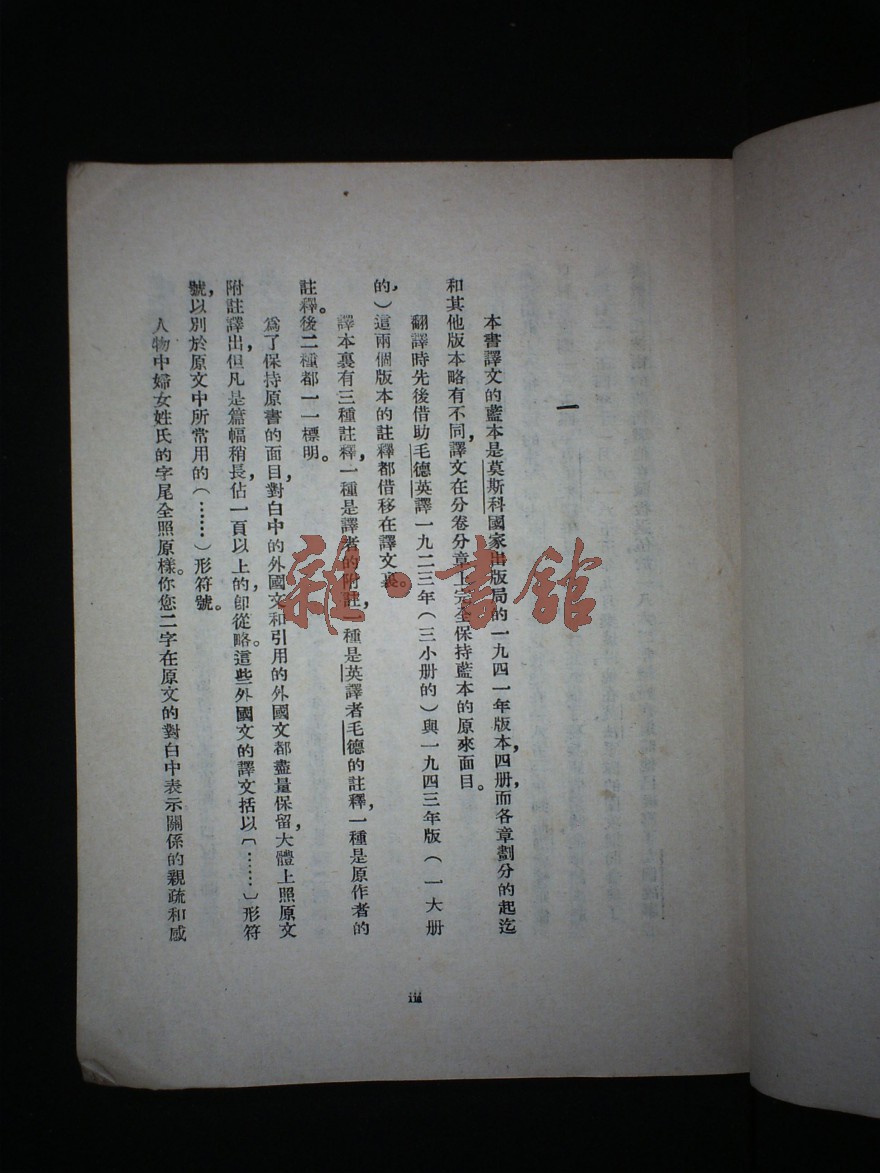 一
本書譯文的藍本是莫斯科國家出版局的一九四一年版本，四册，而各章劃分的起迄
和其他版本略有不同，譯文在分卷分章上完全保持藍本的原來面目。
翻譯時先後借助毛德英譯一九二三年（三小册的）與一九四三年版（一大册
的，）這兩個版本的註釋都借移在譯文裏。
譯本裏有三種註釋，一種是譯者的附註，一種是英譯者毛德的註釋，一種是原作者的
註釋。後二種都一一標明。
爲了保持原書的面目，對白中的外國文和引用的外國文都盡量保留，大體上照原文
附註譯出，但凡是篇幅稍長，佔一頁以上的，卽從略。這些外國文的譯文括以〔……〕形符
號，以別於原文中所常用的（……）形符號。
人物中婦女姓氏的字尾全照原樣。你您二字在原文的對白中表示關係的親疏和感
iii
雜·書館